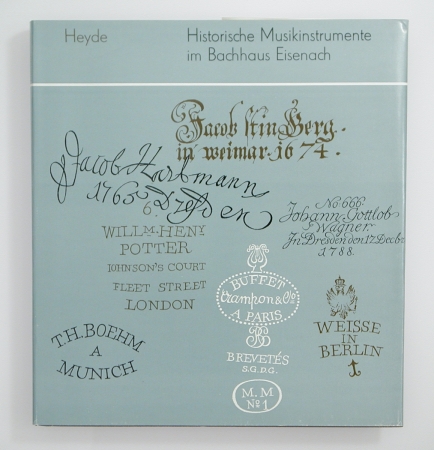 Heyde
Historische Musikinstrumente
im Bachhaus Eisenach
in weimar. 1674.
Jacob Hartmann
1765 Dresden
6.
WILLM. HENY
POTTER
JOHNSON'S COURT
FLEET STREET
LONDON
No 666
Johann Gottlob
Wagner
In Dresden den 17 Decb.
1788.
BUFFET
Crampon & Cie
A PARIS
BREVETÉS
S.G.D.G.
M.M
No 1
WEISSE
IN
BERLIN
T.H. BOEHM
A
MUNICH